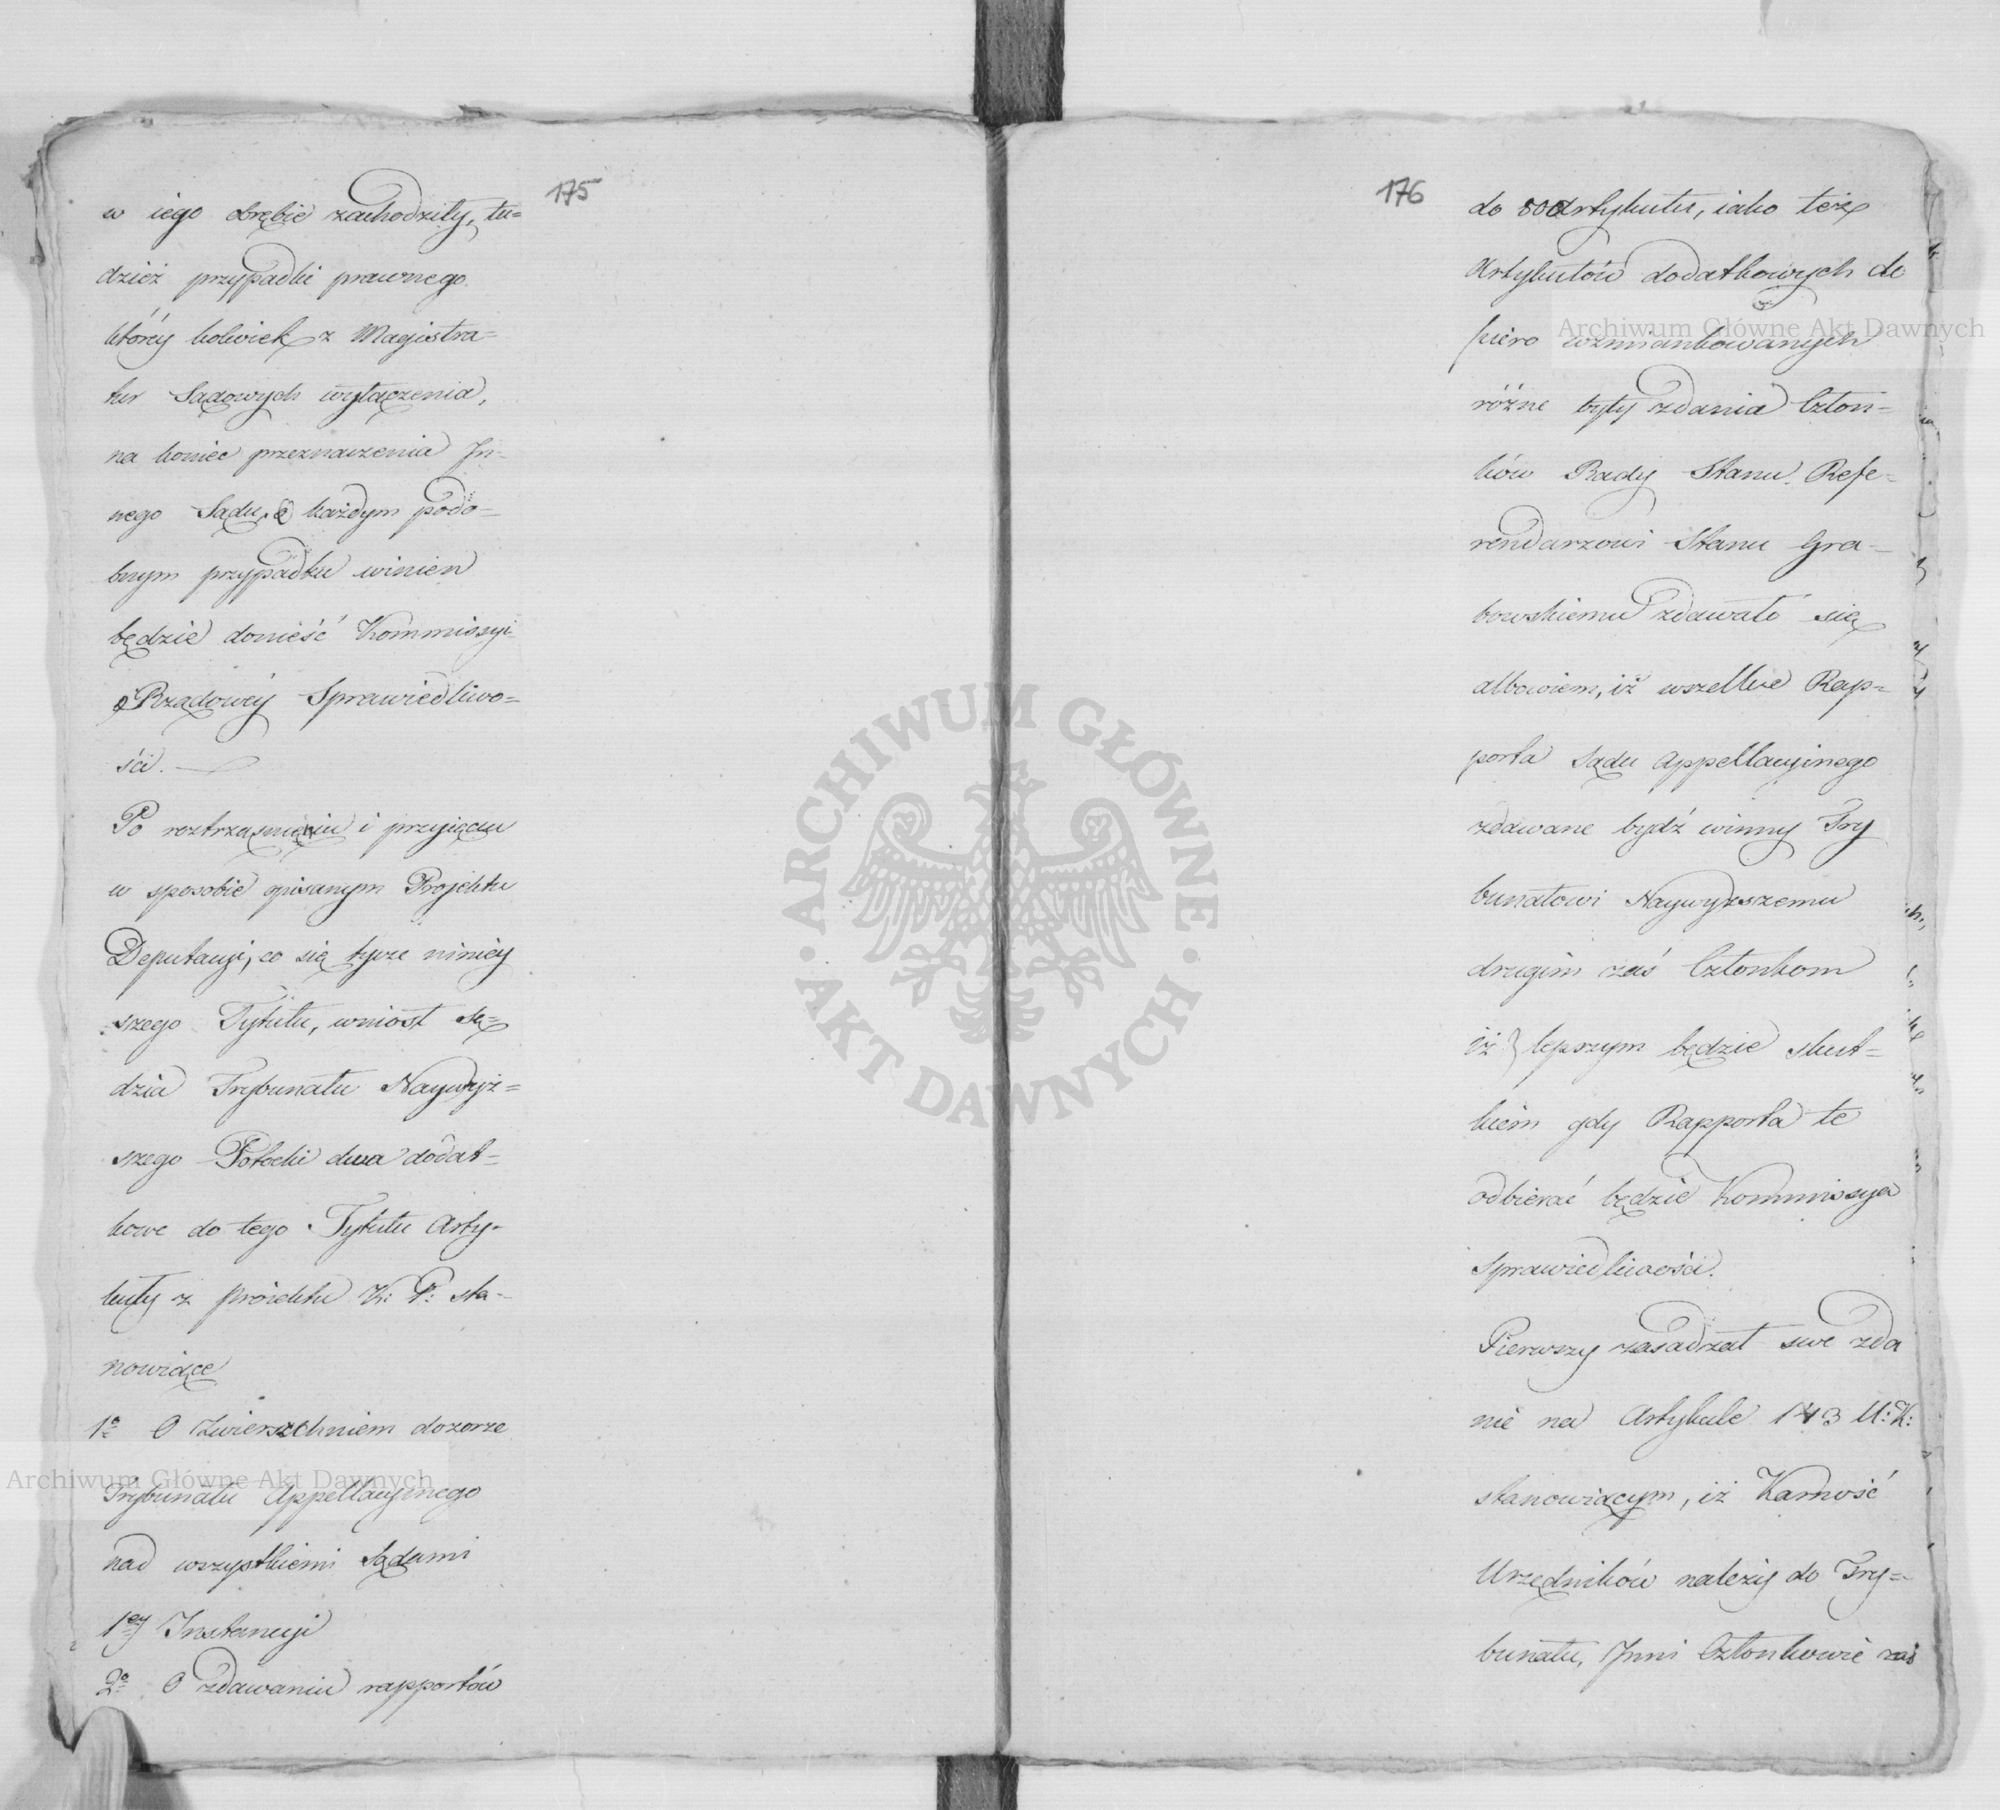 175
w iego obrębie zachodziły, tu=
dzież przypadki prawnego
któréy kolwiek z Magistra=
tur Sądowych wyłączenia,
na koniec przeznaczenia In-
nego Sądu, o każdym podo-
bnym przypadku winien
będzie donieść Kommissyi
Rządowéy Sprawiedliwo=
ści.
Po roztrząśnieniu i przyjęciu
w sposobie opisanym Projektu
Deputacyi, co się tycze niniéy
szego Tytułu, wniosł Sę=
dzia Trybunału Naywyż=
szego Potocki dwa dodat=
kowe do tego Tytułu Arty-
kuły z proiektu K: P: sta-
nowiące
1o O Zwierzchniem dozorze
Trybunału Appellacyinego
nad wszystkiemi Sądami
1ey Instancyi
2o O zdawaniu rapportów
176
do 80 Artykułu, iako też
Artykułów dodatkowych do
piero wzmiankowanych
różne były zdania Człon-
ków Rady Stanu. Refe-
rendarzowi Stanu Gra-
bowskiemu zdawało się
albowiem, iż wszelkie Rap=
porta Sądu Appellacyinego
zdawane bydź winny Try
bunałowi Naywyższemu
drugim zaś Członkom
iż lepszym będzie skut=
kiem gdy Rapporta te
odbierać będzie Kommissya
Sprawiedliwości.
Pierwszy zasadzał swe zda
nie na Artykule 143 U: K:
stanowiącym, iż Karność
Urzędników należy do Try=
bunału, Inni Członkowie zaś
Archiwum Główne Akt Dawnych
Archiwum Główne Akt Dawnych
ARCHIWUM GŁÓWNE · AKT DAWNYCH ·